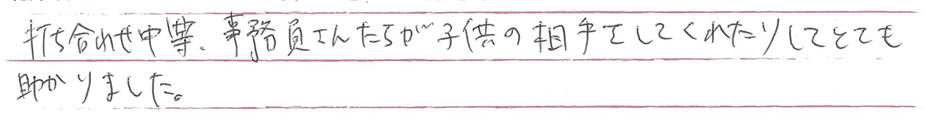 打ち合わせ中等、事務員さんたちが子供の相手をしてくれたりしてとても
助かりました。